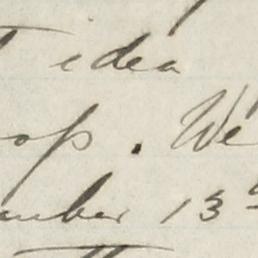 idea
op. We
mber 13